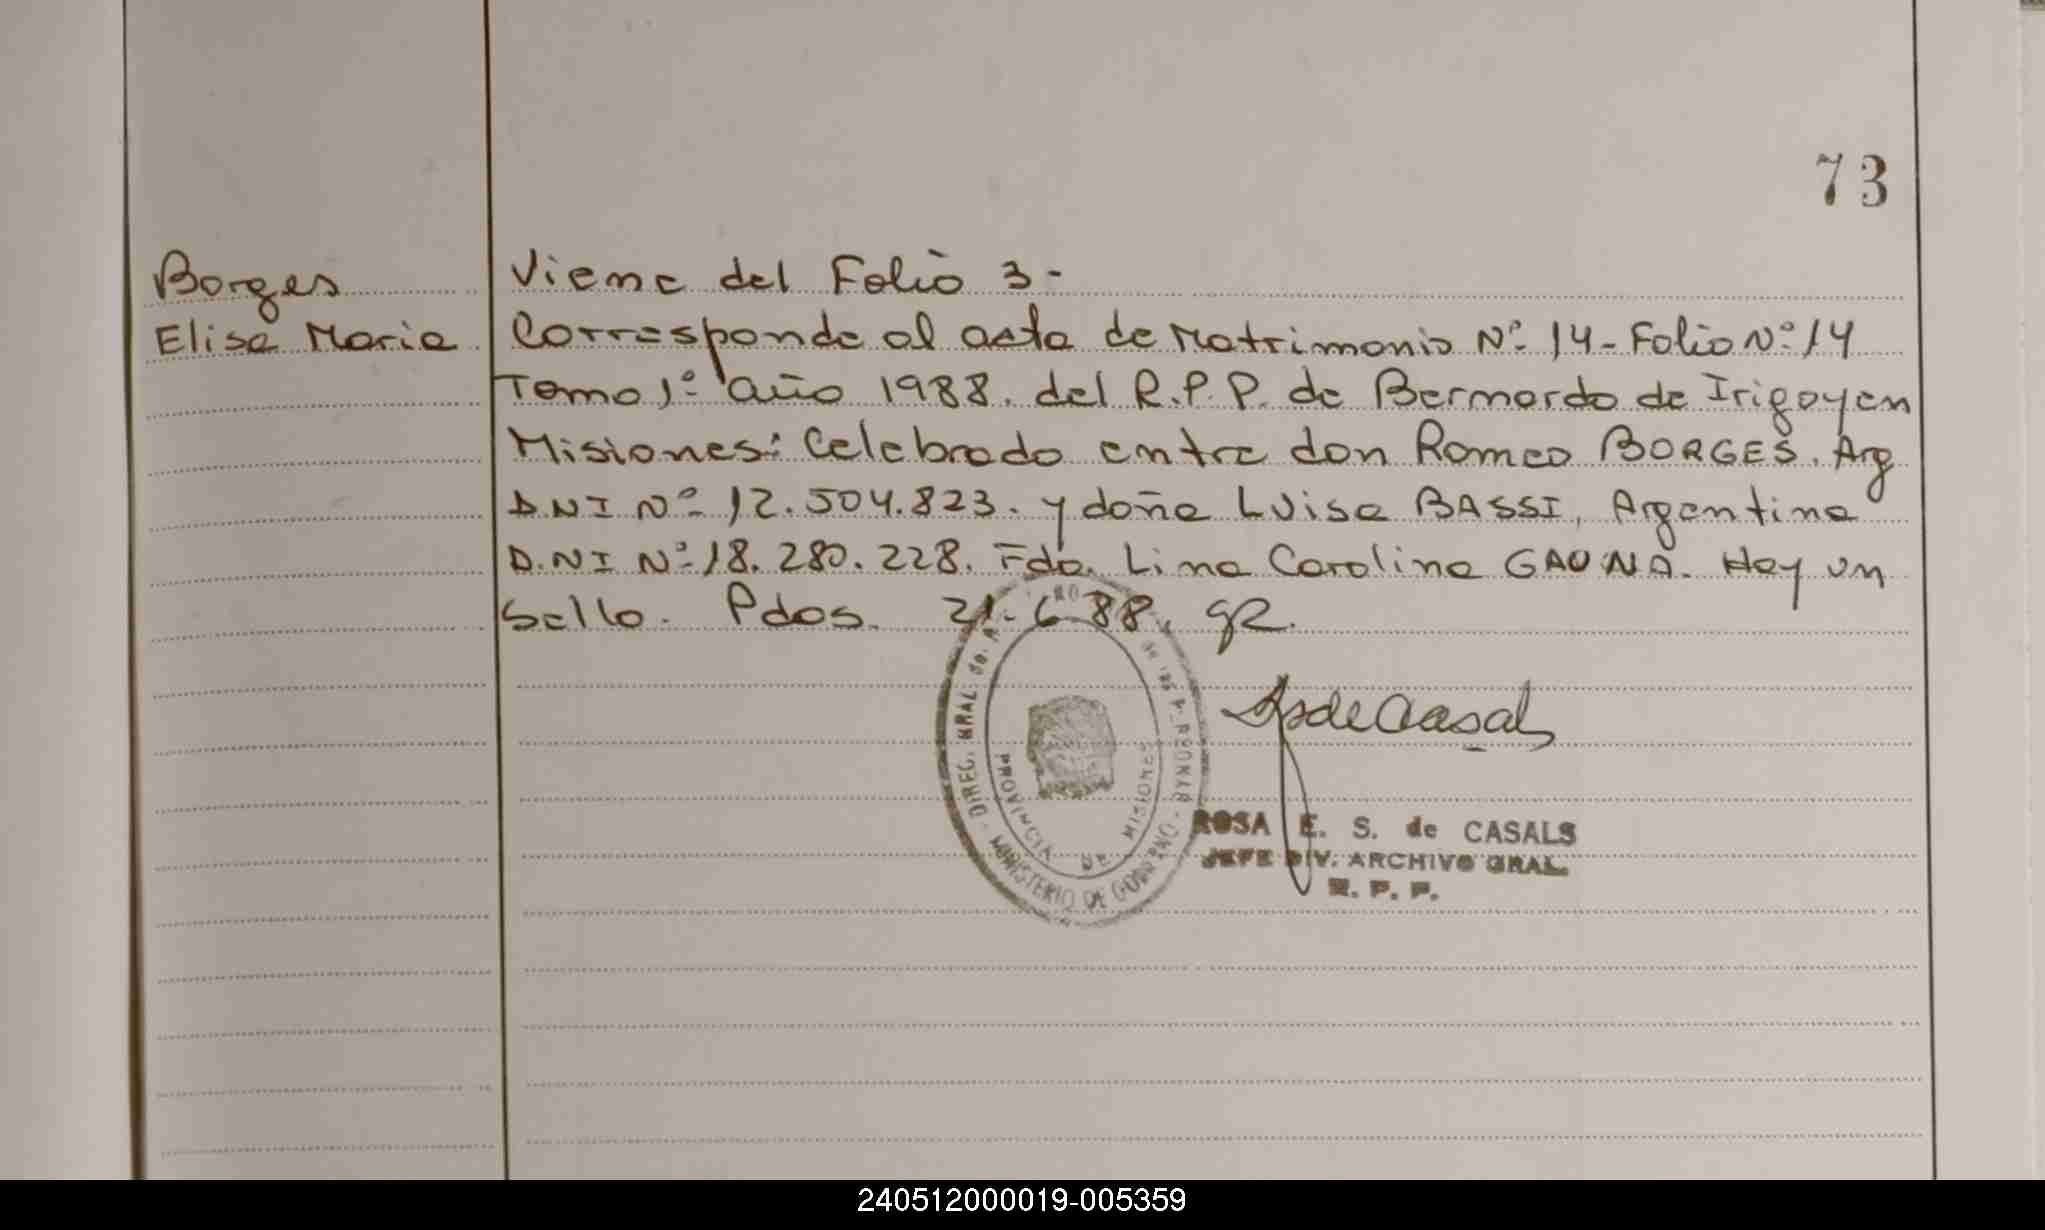 73
Borges
Elisa Maria
Viene del Folio 3-
Corresponde al acta de Matrimonio Nº 14-Folio Nº 14
Tomo 1º año 1988. del R.P.P. de Bernardo de Irigoyen
Misiones: Celebrado entre don Romeo BORGES. Arg
D.N.I Nº 12.504.823. y doña Luisa BASSI, Argentina
D.N.I Nº 18.280.228. Fdo. Lina Carolina GAUNA. Hay un
Sello. Pdos. 21-6-88.
DIREC. GRAL. de
PROVINCIA DE MISIONES
MINISTERIO DE GOBIERNO
ROSA E. S. de CASALS
JEFE DIV. ARCHIVO GRAL.
R. P. P.
240512000019-005359